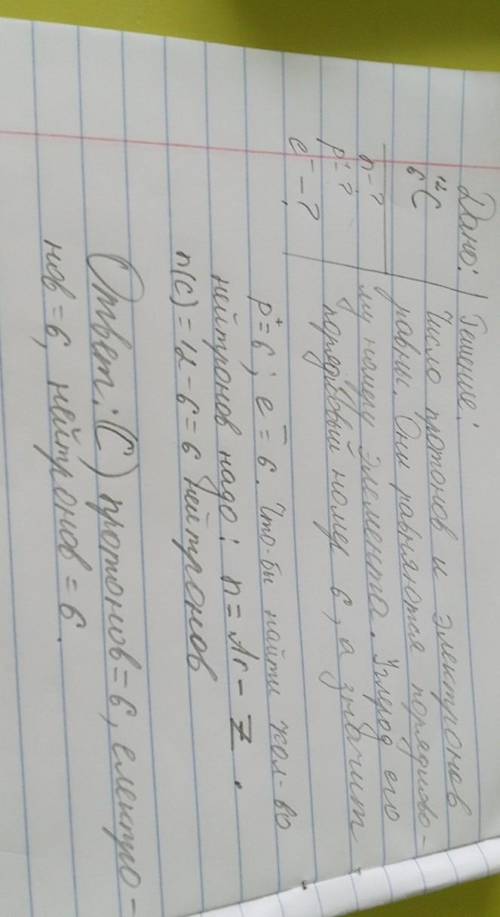 Дано: | Решение:
¹²₆C | Число протонов и электронов
равны. Они равняются порядково-
n - ? | му номеру элемента. Углерод его
p⁺ - ? | порядковый номер 6, а значит
e⁻ - ?
p⁺ = 6; e⁻ = 6. Что-бы найти кол-во
нейтронов надо: n = Ar - Z.
n(C) = 12 - 6 = 6 нейтронов
Ответ: (C) протонов = 6, електро-
нов = 6, нейтронов = 6.